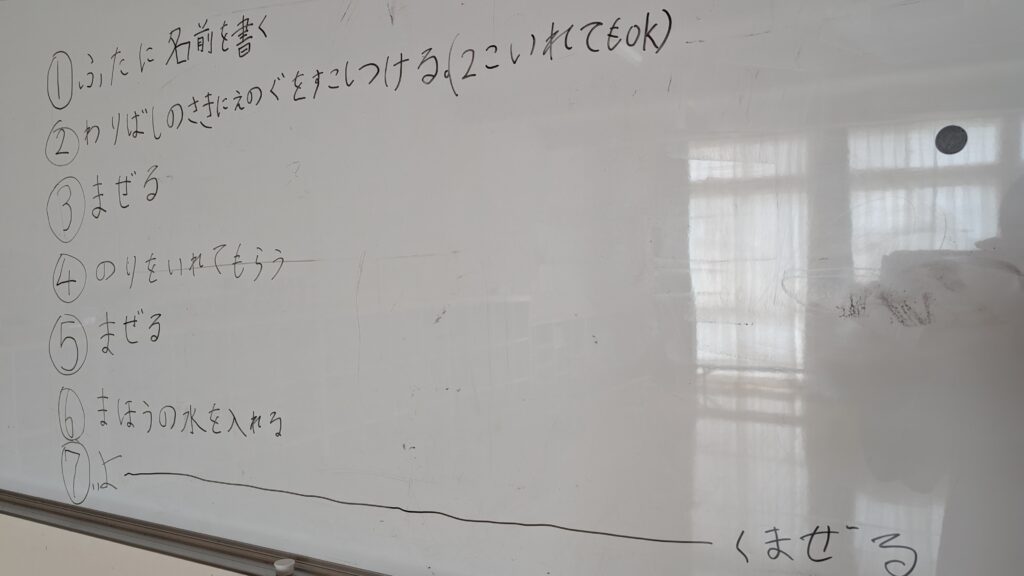 ①ふたに名前を書く
②わりばしのさきにえのぐをすこしつける。(2こいれてもok)
③まぜる
④のりをいれてもらう
⑤まぜる
⑥まほうの水を入れる
⑦よーくまぜる